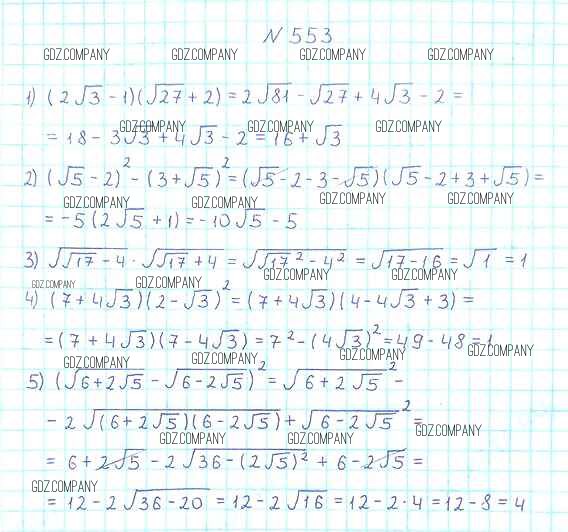 N 553
GDZ.COMPANY GDZ.COMPANY GDZ.COMPANY GDZ.COMPANY
1) (2√3 - 1)(√27 + 2) = 2√81 - √27 + 4√3 - 2 =
GDZ.COMPANY GDZ.COMPANY GDZ.COMPANY
= 18 - 3√3 + 4√3 - 2 = 16 + √3
2) (√5 - 2)² - (3 + √5)² = (√5 - 2 - 3 - √5)(√5 - 2 + 3 + √5) =
GDZ.COMPANY GDZ.COMPANY GDZ.COMPANY GDZ.COMPANY
= -5(2√5 + 1) = -10√5 - 5
3) √(√17 - 4) · √(√17 + 4) = √(√17² - 4²) = √(17 - 16) = √1 = 1
GDZ.COMPANY GDZ.COMPANY GDZ.COMPANY GDZ.COMPANY
4) (7 + 4√3)(2 - √3)² = (7 + 4√3)(4 - 4√3 + 3) =
= (7 + 4√3)(7 - 4√3) = 7² - (4√3)² = 49 - 48 = 1
GDZ.COMPANY GDZ.COMPANY GDZ.COMPANY GDZ.COMPANY
5) (√(6 + 2√5) - √(6 - 2√5))² = √(6 + 2√5)² -
- 2√((6 + 2√5)(6 - 2√5)) + √(6 - 2√5)² =
GDZ.COMPANY GDZ.COMPANY GDZ.COMPANY
= 6 + 2√5 - 2√(36 - (2√5)²) + 6 - 2√5 =
GDZ.COMPANY
= 12 - 2√(36 - 20) = 12 - 2√16 = 12 - 2 · 4 = 12 - 8 = 4